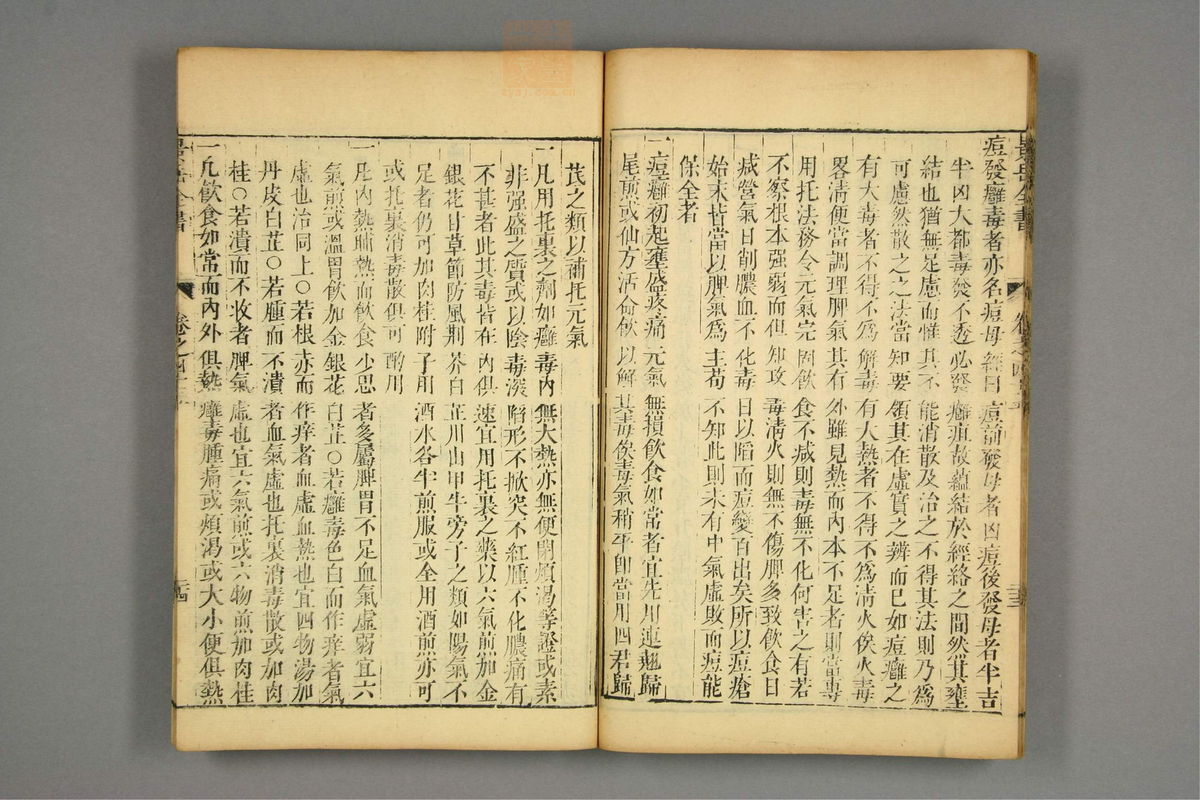 痘發癰毒者亦名痘母經曰痘前發母者凶痘後發母者半吉
半凶大都毒發不透必發癰疽故蘊結於經絡之間然其壅
結也猶無足慮而惟其不能消散及治之不得其法則乃爲
可慮然散之之法當知要領其在虛實之辨而已如痘癰之
有大毒者不得不爲解毒有大熱者不得不爲淸火俟火毒
畧淸便當調理脾氣其有外雖見熱而內本不足者則當專
用托法務令元氣完固飲食不减則毒無不化何害之有若
不察根本强弱而但知攻毒淸火則無不傷脾多致飲食日
减營氣日削膿血不化毒日以陷而痘變百出矣所以痘瘡
始末皆當以脾氣爲主苟不知此則未有中氣虛敗而痘能
保全者
一痘癰初起壅盛疼痛元氣無損飲食如常者宜先用連翹歸
尾煎或仙方活命飲以解其毒俟毒氣稍平卽當用四君歸
茋之類以補托元氣
一凡用托裏之劑如癰毒內無大熱亦無便閉煩渴等證或素
非强盛之質或以陰毒深陷形不掀突不紅腫不化膿痛有
不甚者此其毒皆在內俱速宜用托裏之藥以六氣煎加金
銀花甘草節防風荆芥白芷川山甲牛旁子之類如陽氣不
足者仍可加肉桂附子用酒水各半煎服或全用酒煎亦可
或托裏消毒散俱可酌用
一凡內熱晡熱而飲食少思者多屬脾胃不足血氣虛弱宜六
氣煎或溫胃飲加金銀花白芷○若癰毒色白而作痒者氣
虛也治同上○若根赤而作痒者血虛血熱也宜四物湯加
丹皮白芷○若腫而不潰者血氣虛也托裏消毒散或加肉
桂○若潰而不收者脾氣虛也宜六氣煎或六物煎加肉桂
一凡飲食如常而內外俱熱癰毒腫痛或煩渴或大小便俱熱
景岳全書
卷之四十五
三十四